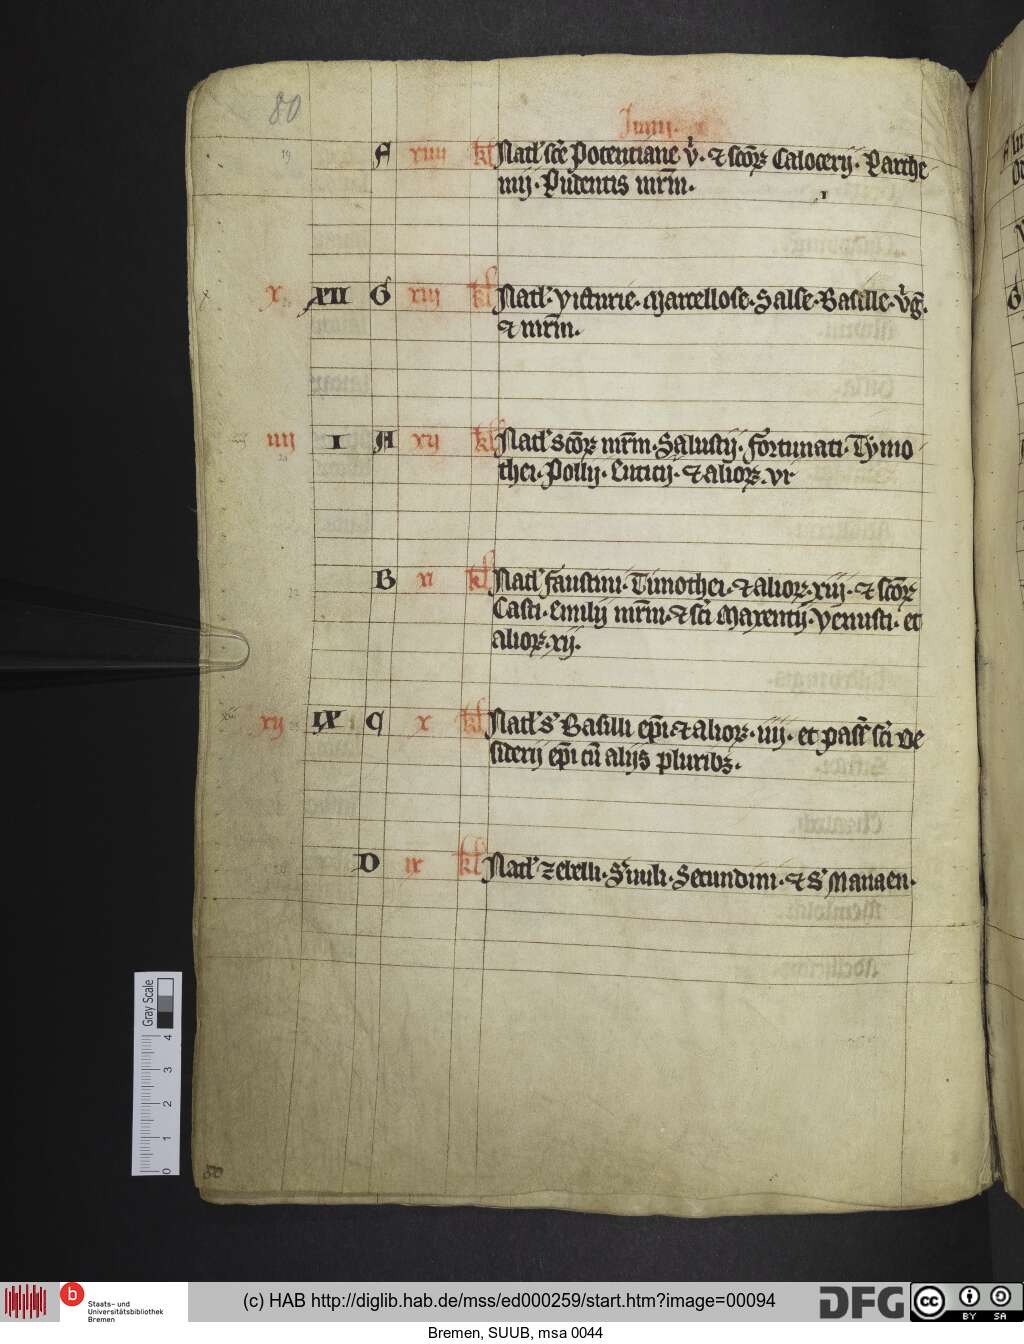 80
Iunii.
19 F xiiii kl Natl' sce Potentiane v̓. ⁊ scoꝝ Calocerij. Parthe
mij. Pudentis mr̄m.
x XII G xiii kl Natl'. Victurie. Marcellose. Salse. Basille. v̓g̅.
⁊ mr̄m.
iiij I A xij kl Natl' scoꝝ mr̄m. Salustij. Fortunati. Tymo
thei. Polly. Eutitij. ⁊ alioꝝ. vi
22 B xi kl Natl' faustini. Timothei. ⁊ alioꝝ. xiij. ⁊ scoꝝ
Casti. Emilij mr̄m. ⁊ sci Maxentij. Venusti. et
alioꝝ. xij.
xij IX C x kl Natl' s' Basilli ep̄i ⁊ alioꝝ. iiij. et pass' sci De
siderij ep̄i cū alijs pluribꝫ.
D ix kl Natl' Zebelli. S'iuuli. Secundini. ⁊ S' Manaen.
80
Gray Scale
0 1 2 3 4
b Staats- und
Universitätsbibliothek
Bremen
(c) HAB http://diglib.hab.de/mss/ed000259/start.htm?image=00094
DFG
cc BY SA
Bremen, SUUB, msa 0044